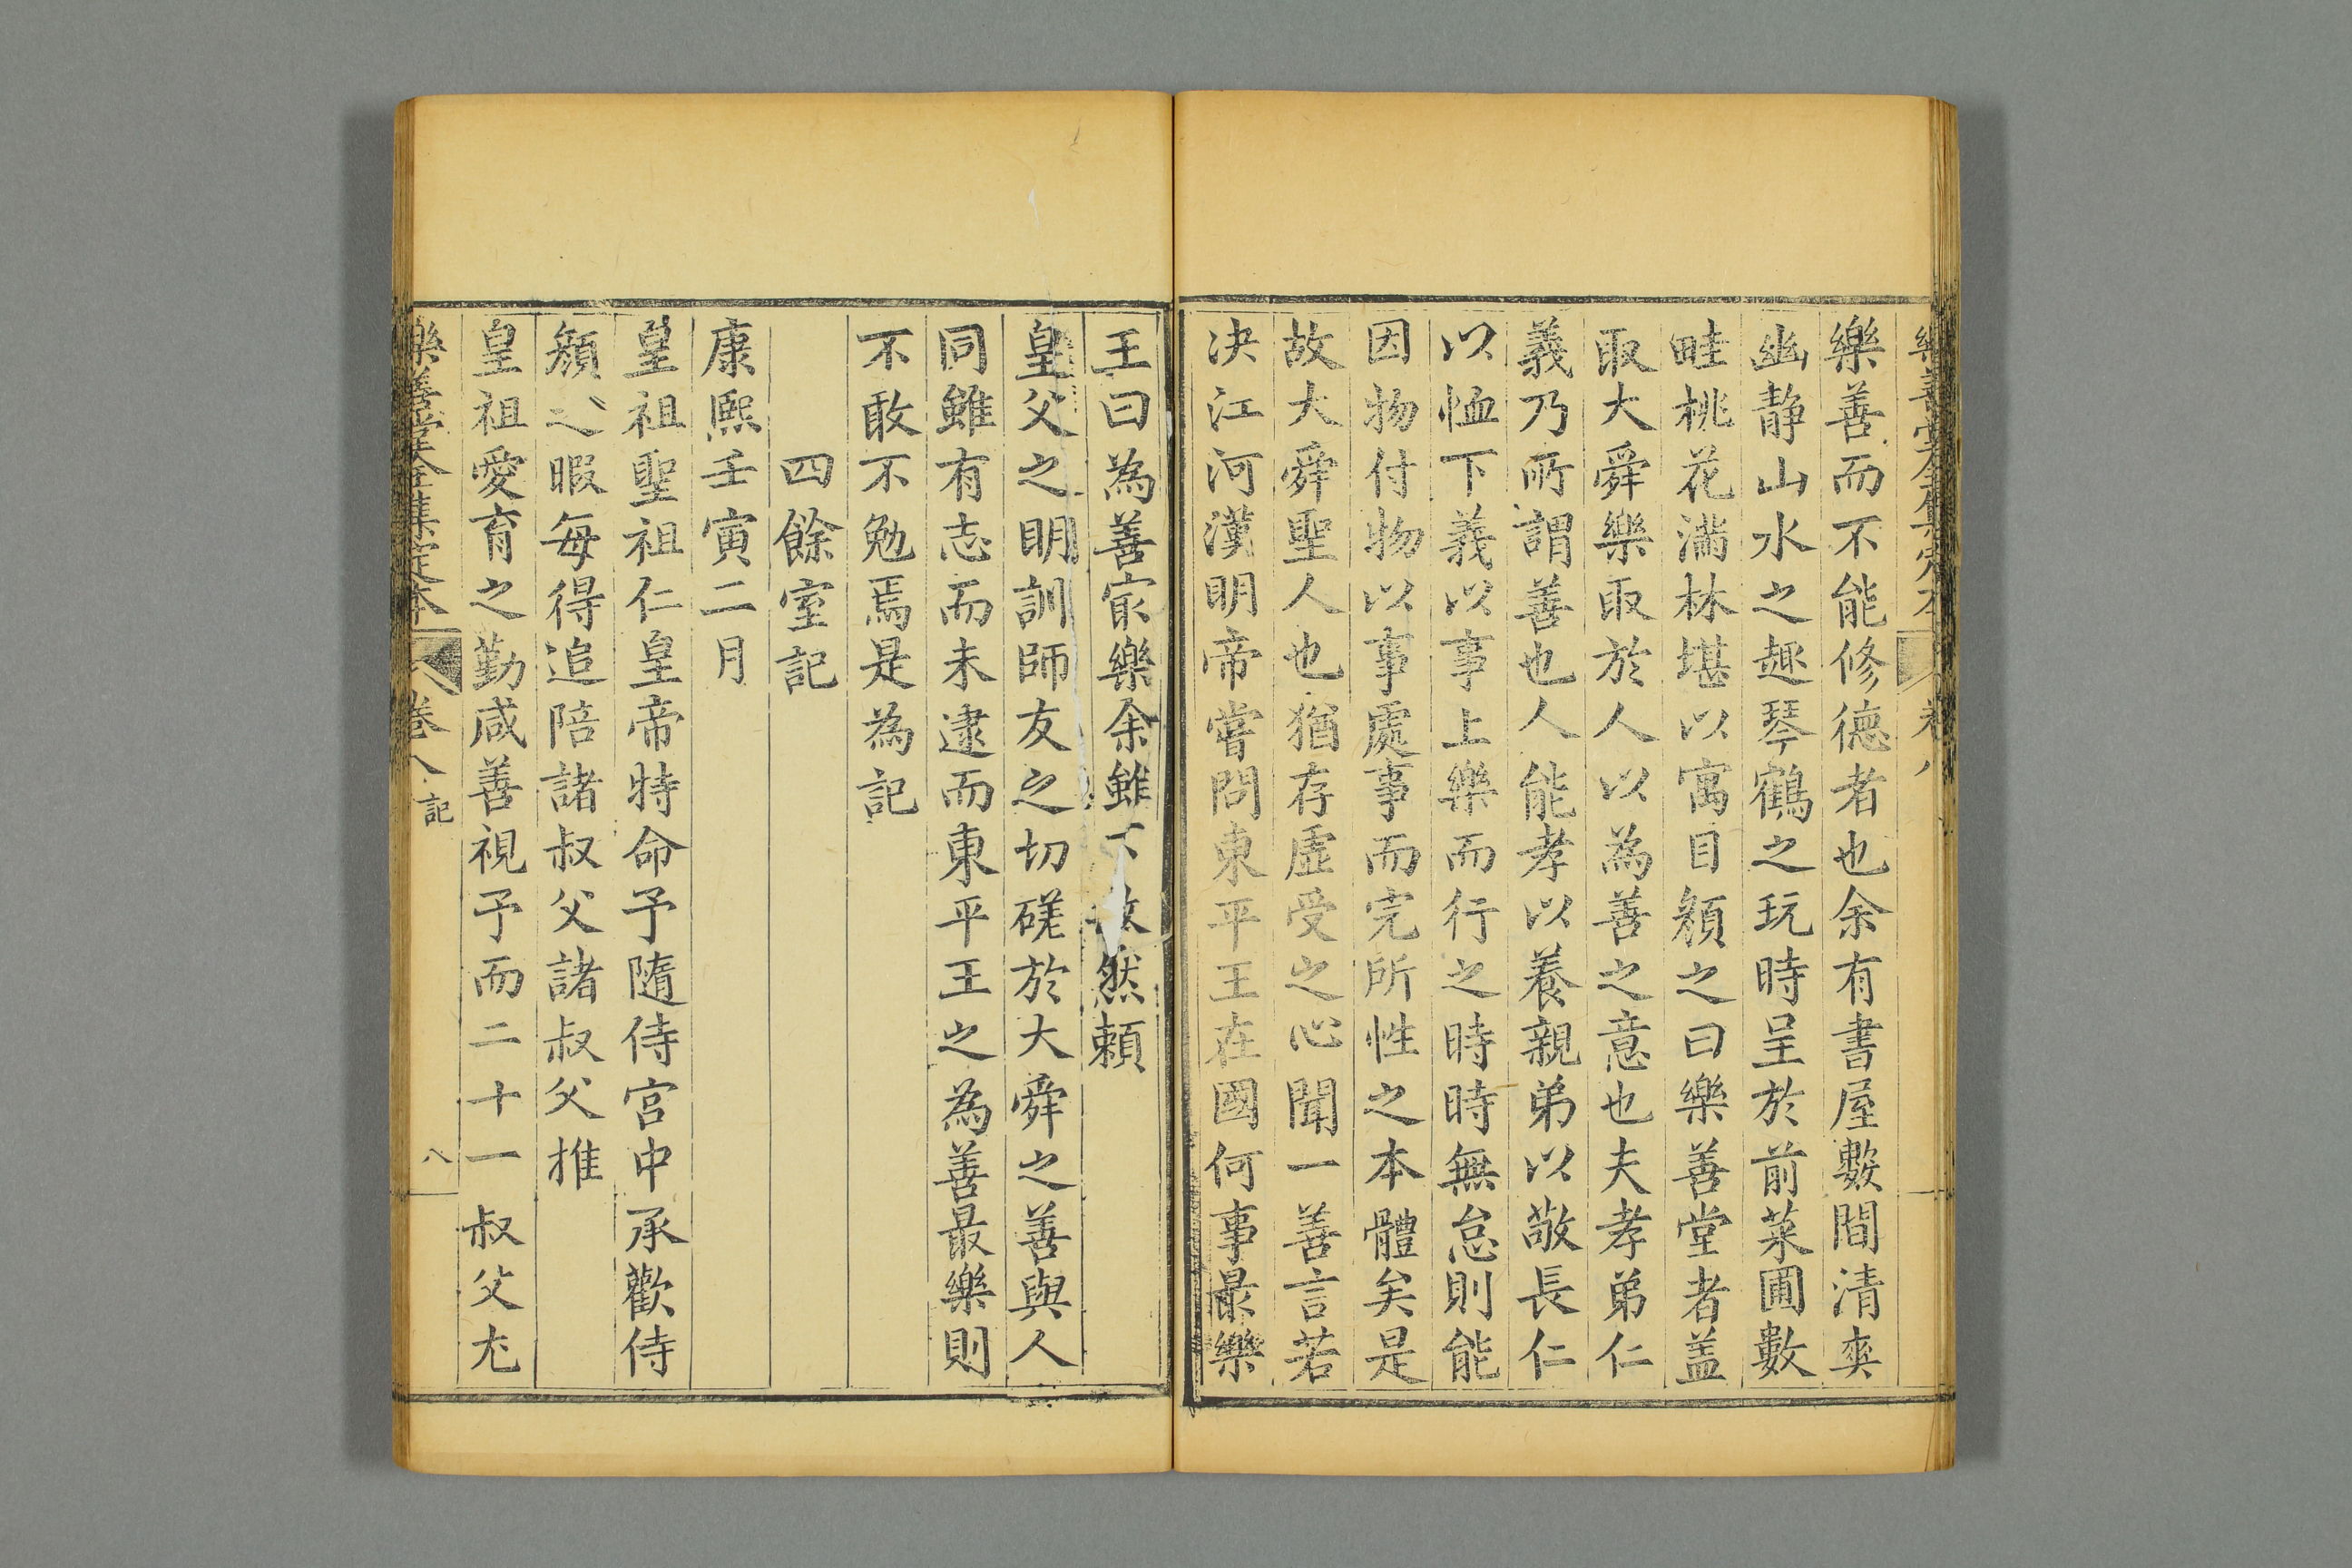 樂善堂全集定本 卷八
樂善而不能修德者也余有書屋數間清爽
幽静山水之趣琴鶴之玩時呈於前菜圃數
畦桃花滿林堪以寓目顏之曰樂善堂者盖
取大舜樂取於人以為善之意也夫孝弟仁
義乃所謂善也人能孝以養親弟以敬長仁
以恤下義以事上樂而行之時時無怠則能
因物付物以事處事而完所性之本體矣是
故大舜聖人也猶存虛受之心聞一善言若
决江河漢明帝嘗問東平王在國何事最樂
王曰為善㝡樂余雖不敏然賴
皇父之明訓師友之切磋於大舜之善與人
同雖有志而未逮而東平王之為善最樂則
不敢不勉焉是為記
四餘室記
康熙壬寅二月
皇祖聖祖仁皇帝特命予隨侍宮中承歡侍
顏之暇每得追陪諸叔父諸叔父推
皇祖愛育之勤咸善視予而二十一叔父尤
樂善堂全集定本 卷八 記 八